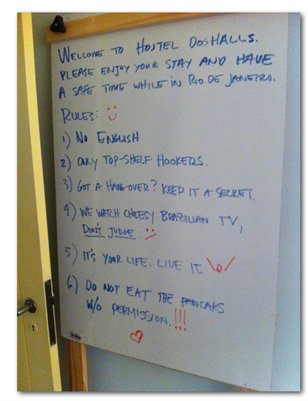 WELCOME TO HOSTEL DOSHALLS.
PLEASE ENJOY YOUR STAY AND HAVE
A SAFE TIME WHILE IN RIO DE JANEIRO.
RULES: :)
1) NO ENGLISH
2) ONLY TOP-SHELF HOOKERS.
3) GOT A HANG-OVER? KEEP IT A SECRET.
4) WE WATCH CHEESY BRAZILIAN TV,
DON'T JUDGE. :)
5) IT'S YOUR LIFE. LIVE IT. \o/
6) DO NOT EAT THE PANCAKS
W/O PERMISSION.!!!
♡